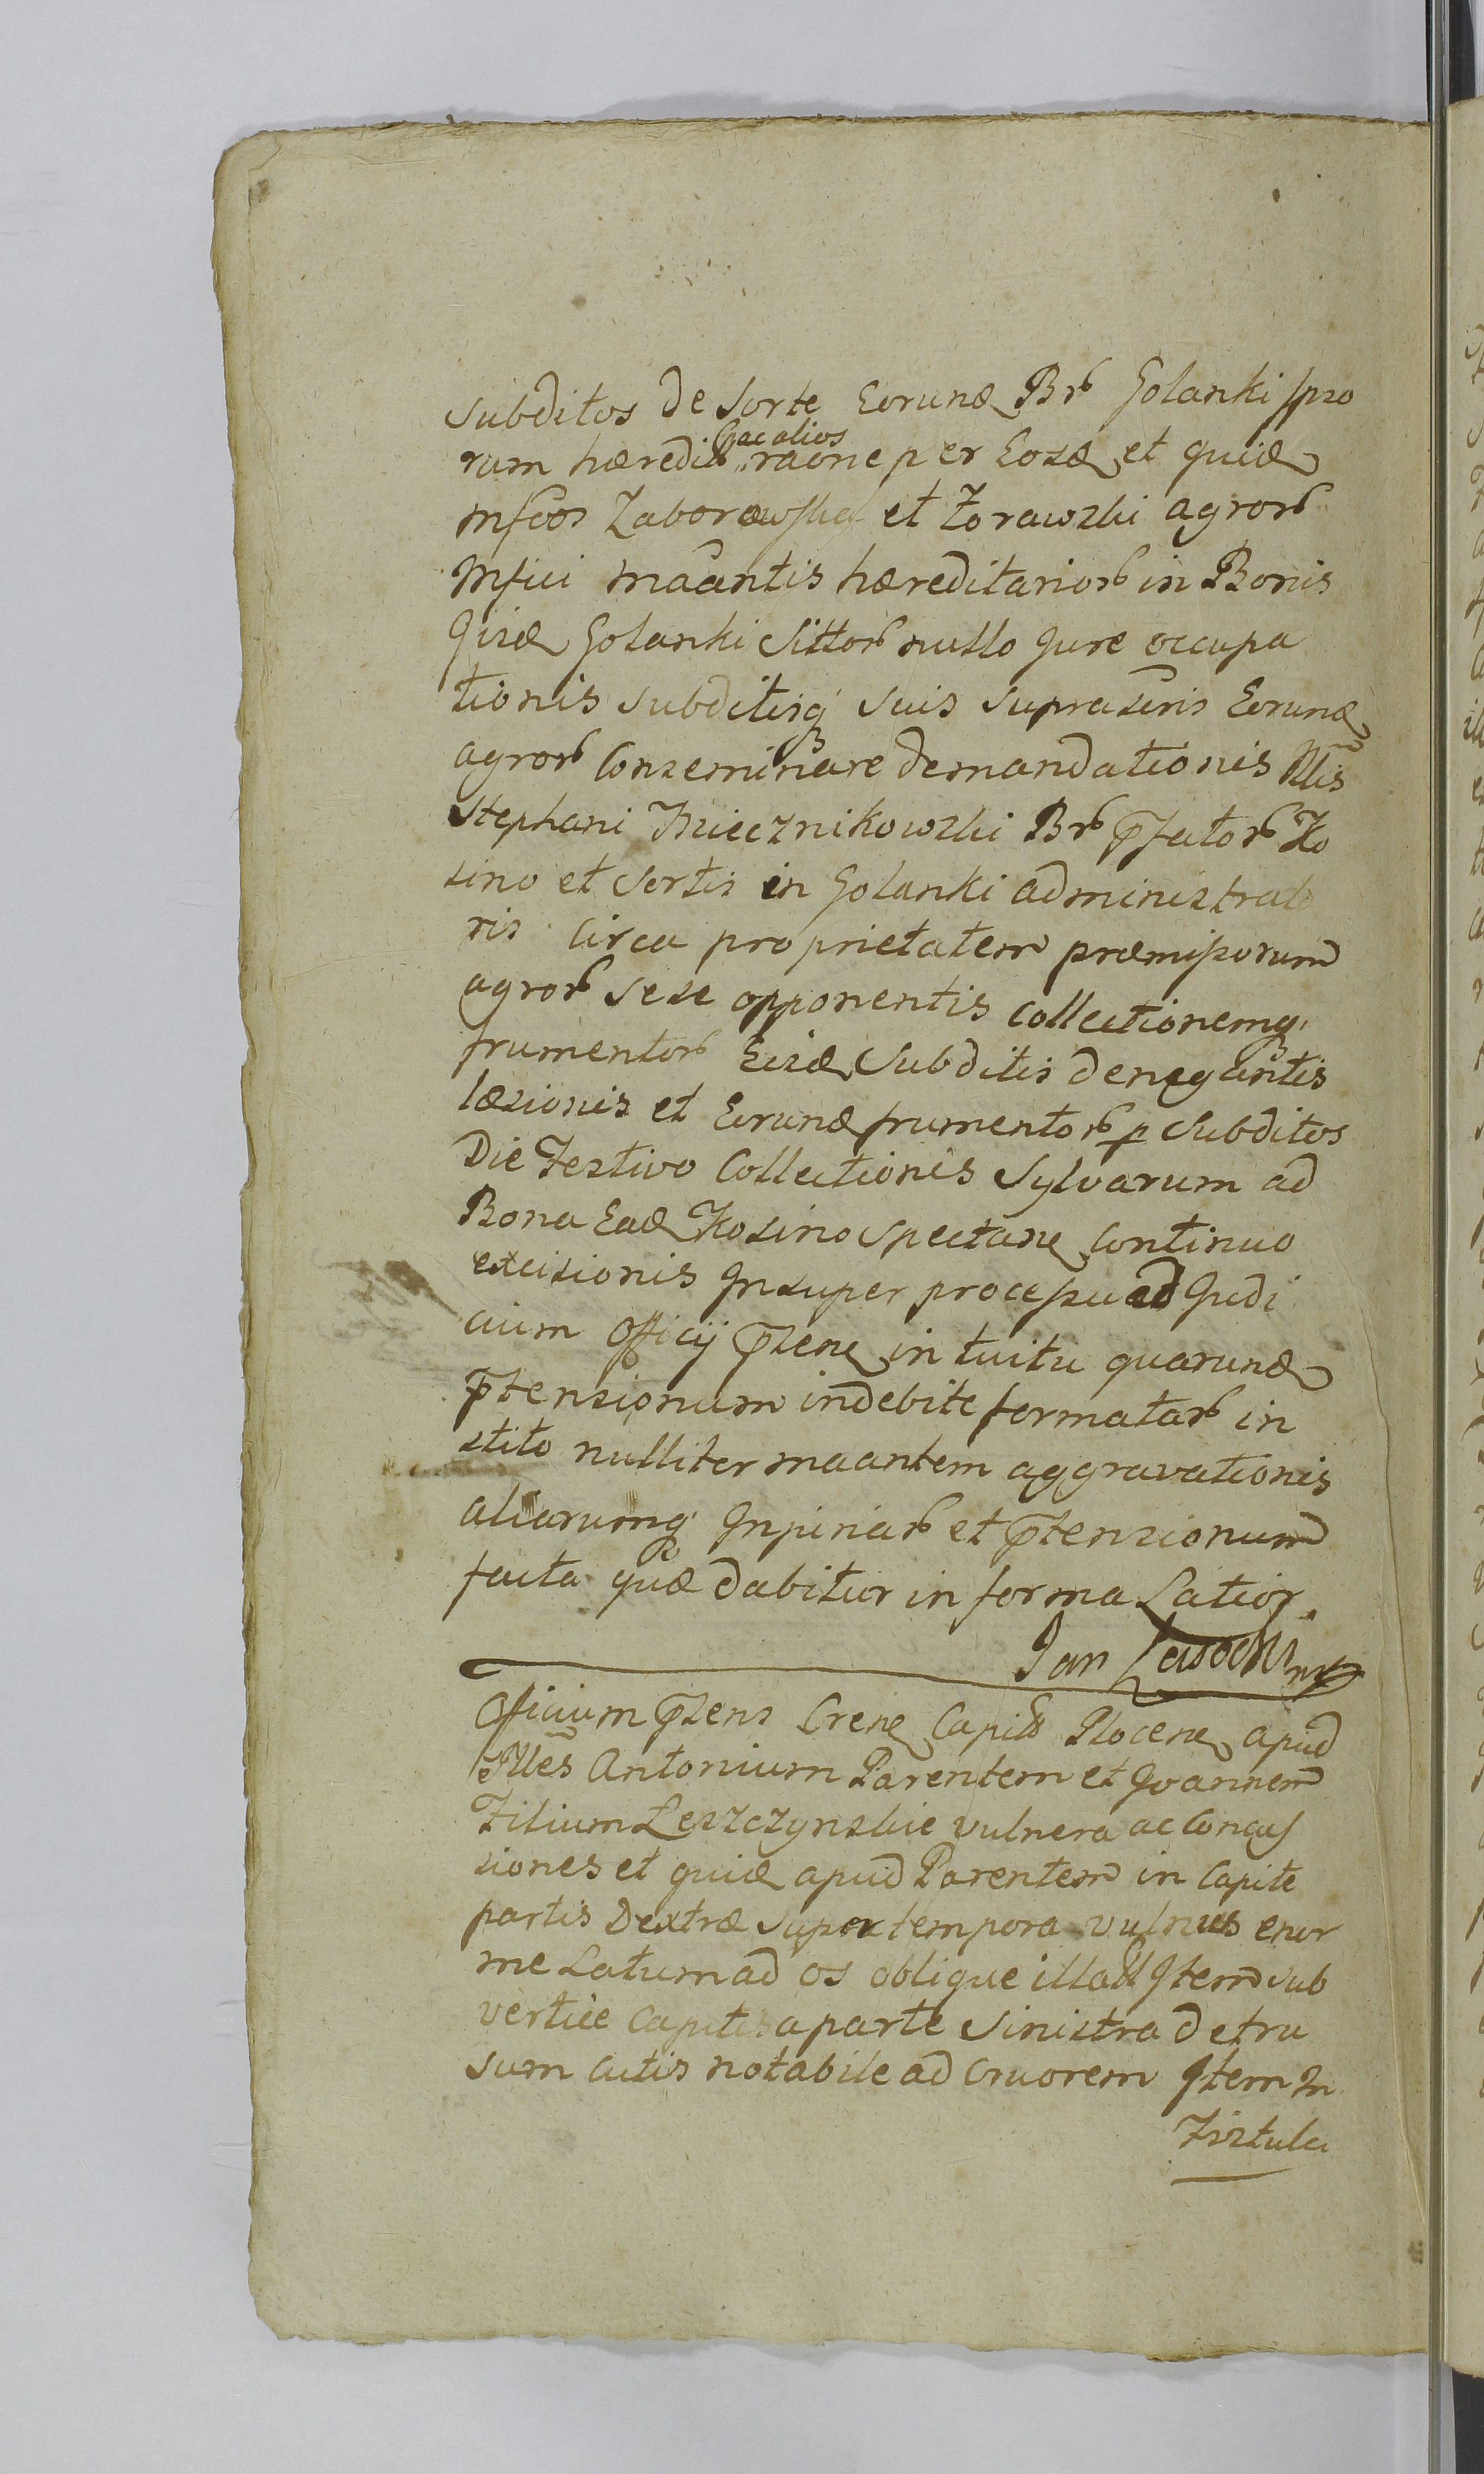 subditos de sorte Eorund Brb Golanki ipso
rum hæredib ac alios raone per Eosd et quid
Mfcos Zaborowski et Żorawski agrorb
Mfici maantis hæreditariorb in Bonis
Iisd Golanki Sittorb nullo Jure occupa
tionis subditisq suis suprascris Eorund
agrorb Conseminare demandationis Nlis
Stephani Miecznikowski Brb pfatorb Ko
sino et sortis in Golanki administrato
ris circa proprietatem præmissorum
agrorb sese opponentis collectionemq
frumentorb Eisd Subditis denegantis
læsionis et Eorund frumentorb p Subditos
Die Festivo Collectionis Sylvarum ad
Bona Ead Kosino Spectane Continuo
excisionis Insuper processu ad Judi
cium Officij psene in tuitu quarund
ptensionum indebite formatarb in
stito nulliter maantem aggravationis
aliarumq Injuriarb et ptensionum
facta quæ dabitur in forma Latior.
Jan Lasocki mp
Officium psens Crense Capitle Plocense apud
Nlles Antonium Parentem et Joannem
Filium Leszczynskie vulnera ac Concus
siones et quid apud Parentem in Capite
partis Dextræ super tempora vulnus enor
me Latum ad os oblique illatt Item sub
vertice Capitis a parte Sinistra detru
sum Cutis notabile ad Cruorem Item In
Fistula